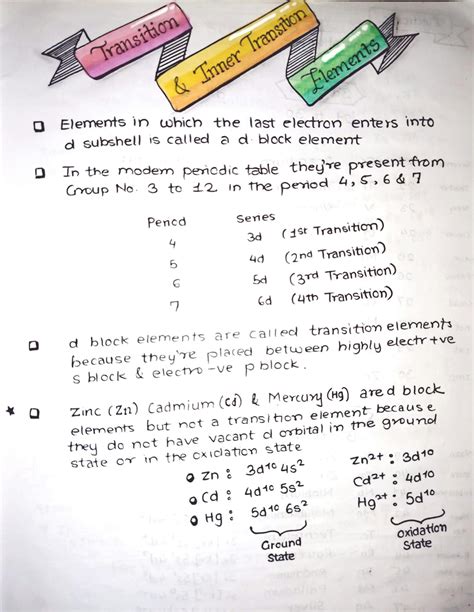 Transition
& Inner Transition
Elements
Elements in which the last electron enters into
d subshell is called a d block element
In the modern periodic table they're present from
Group No. 3 to 12 in the period 4, 5, 6 & 7
Period Series
4 3d (1st Transition)
5 4d (2nd Transition)
6 5d (3rd Transition)
7 6d (4th Transition)
d block elements are called transition elements
because they're placed between highly electr +ve
s block & electro -ve p block.
Zinc (Zn) Cadmium (Cd) & Mercury (Hg) are d block
elements but not a transition element because
they do not have vacant d orbital in the ground
state or in the oxidation state
Zn : 3d10 4s2 Zn2+ : 3d10
Cd : 4d10 5s2 Cd2+ : 4d10
Hg : 5d10 6s2 Hg2+ : 5d10
Ground
State
oxidation
State